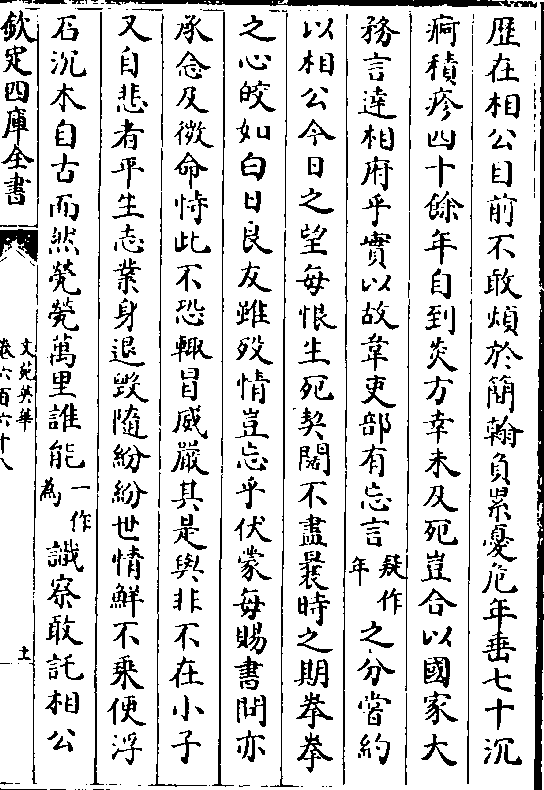 歴在相公目前不敢煩於簡翰負累憂危年垂七十沉
痾積疹四十餘年自到炎方幸未及死豈合以國家大
務言達相府乎實以故韋吏部有忘言疑作年之分嘗約
以相公今日之望每恨生死契闊不盡曩時之期拳拳
之心皎如白日良友雖殁情豈忘乎伏蒙每賜書問亦
承念及微命恃此不恐輙冒威嚴其是與非不在小子
又自悲者平生志業身退毁隨紛紛世情鮮不乗便浮
石沉木自古而然煢煢萬里誰能一作為識察敢託相公
欽定四庫全書
文苑英華
卷六百六十八
土